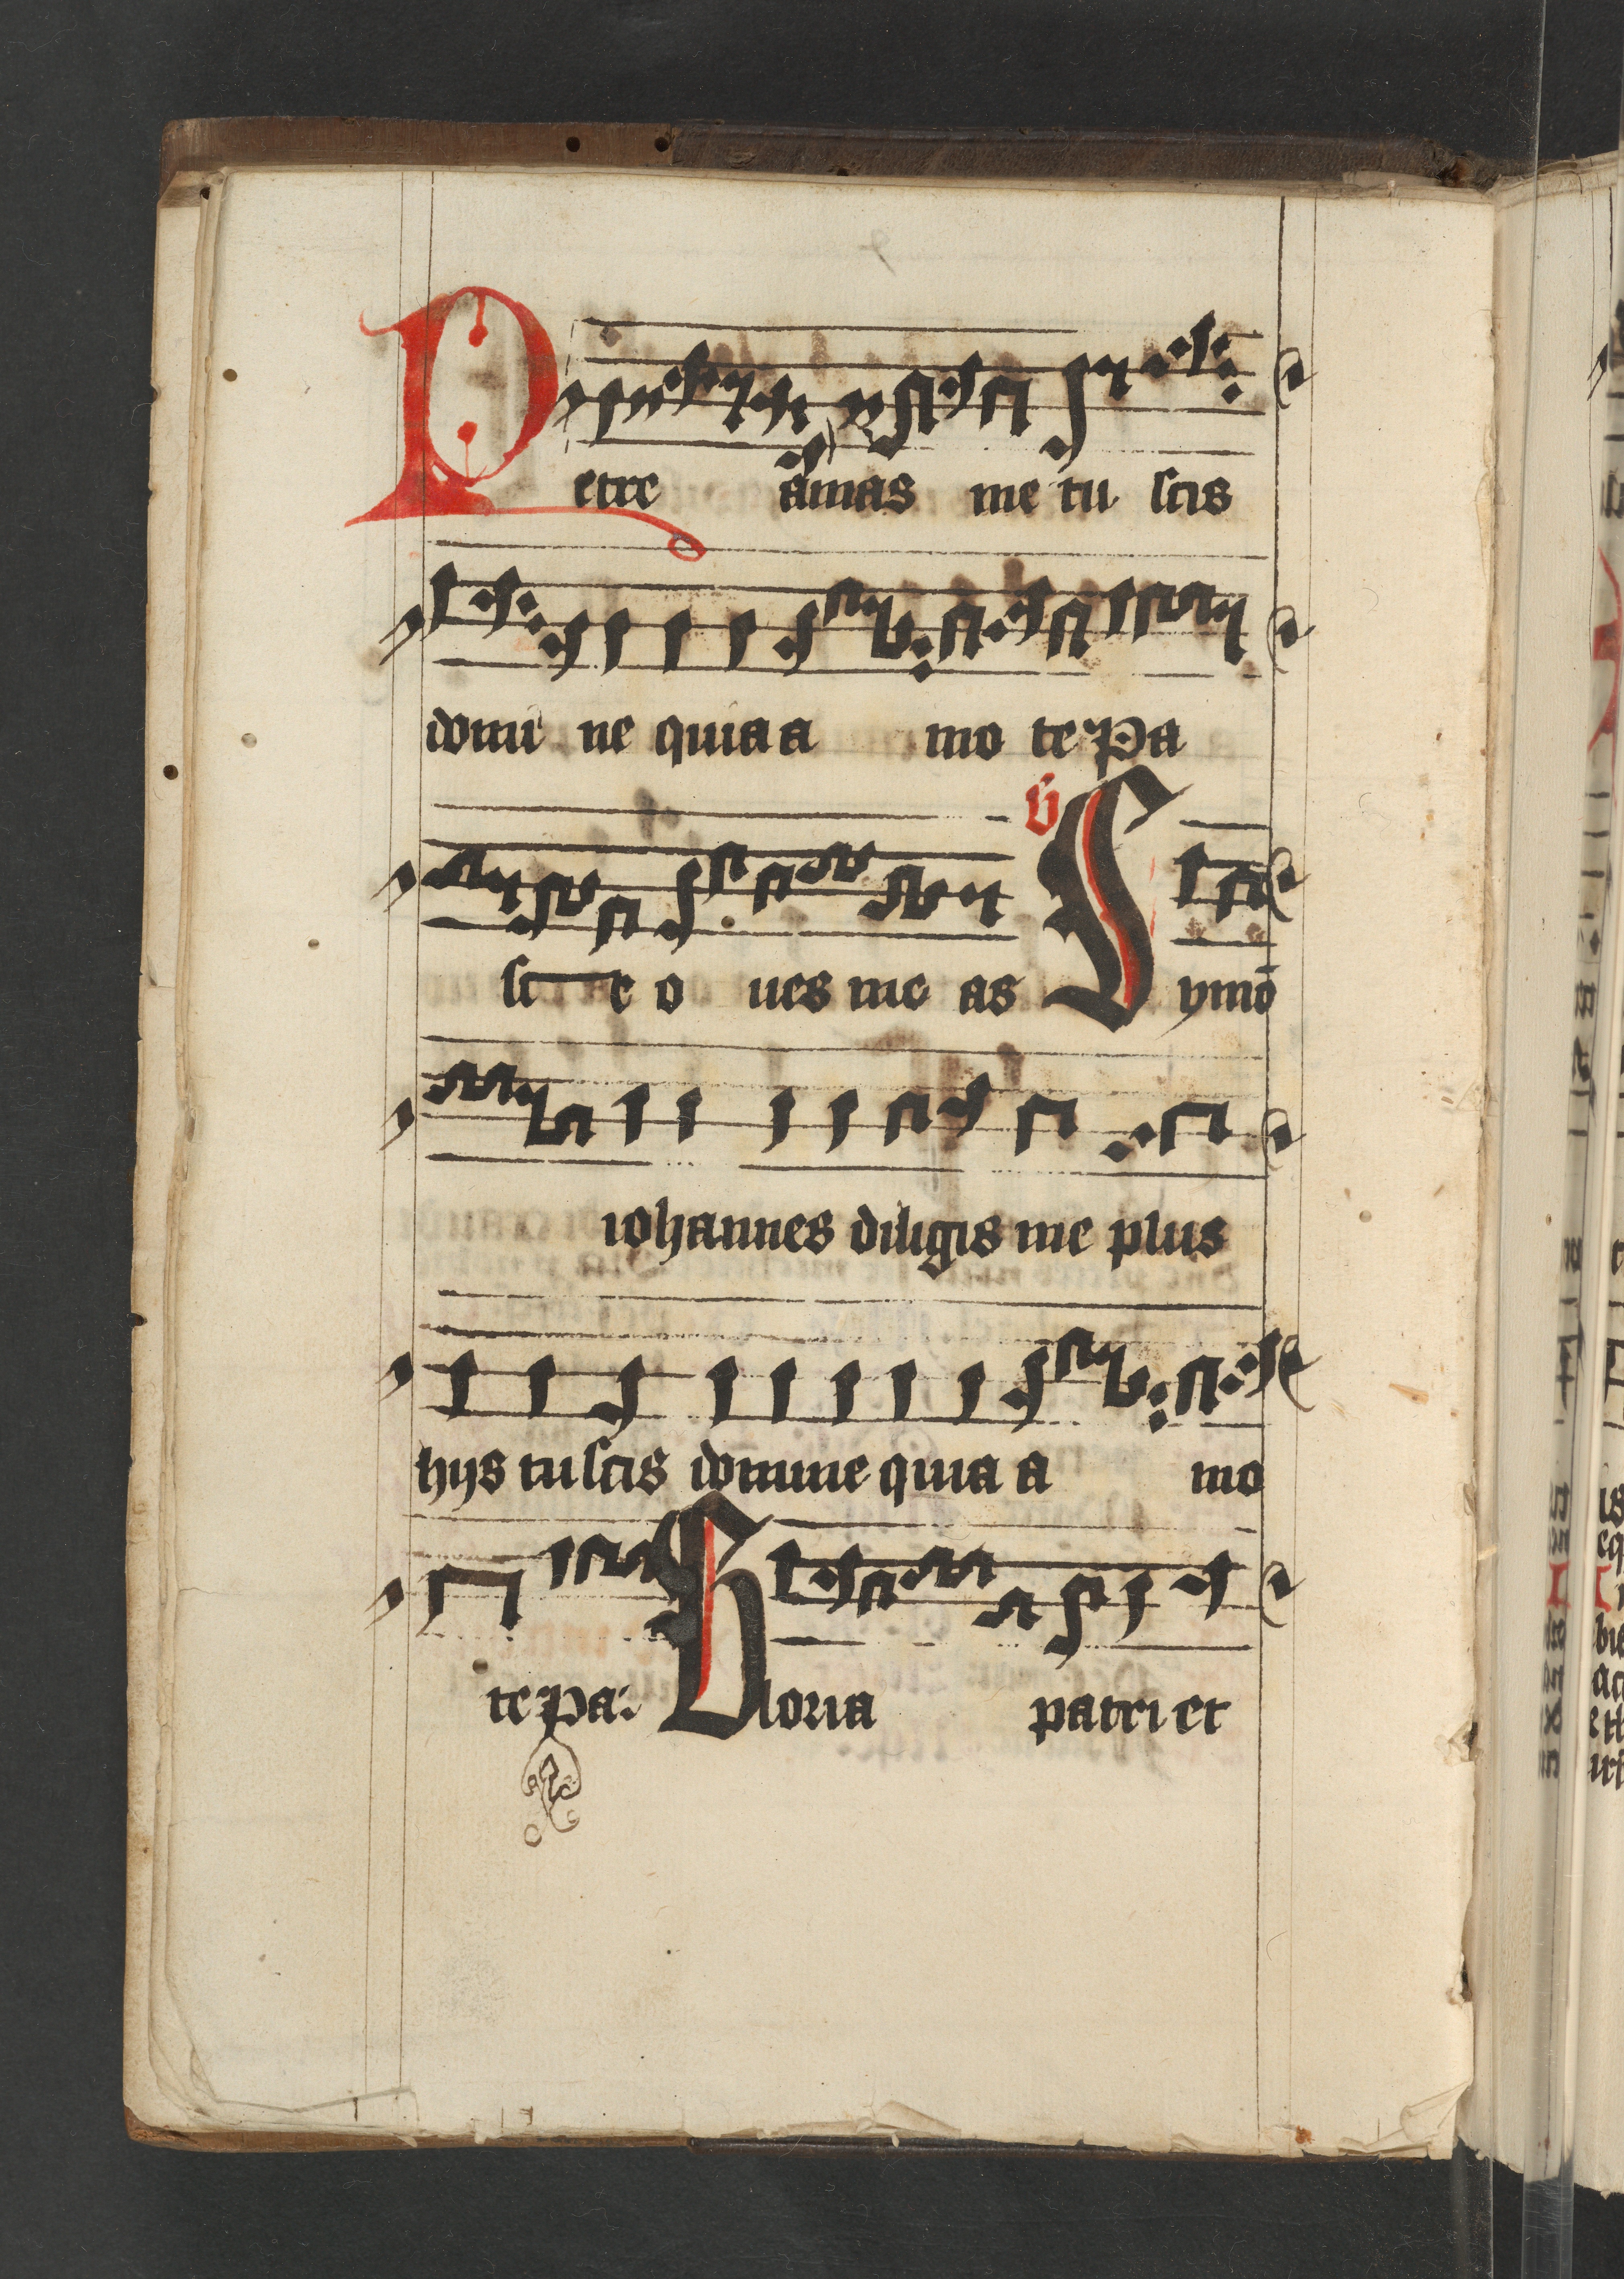 Petre amas me tu scis
domi ne quia a mo te Pa
sc e o ues me as V Symō
iohannes diligis me plus
hijs tu scis domine quia a mo
te Pa: Gloria patri et